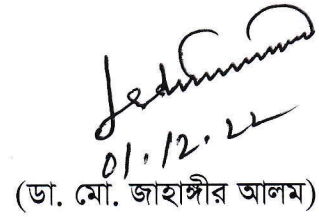 01.12.22
(ডা. মো. জাহাঙ্গীর আলম)